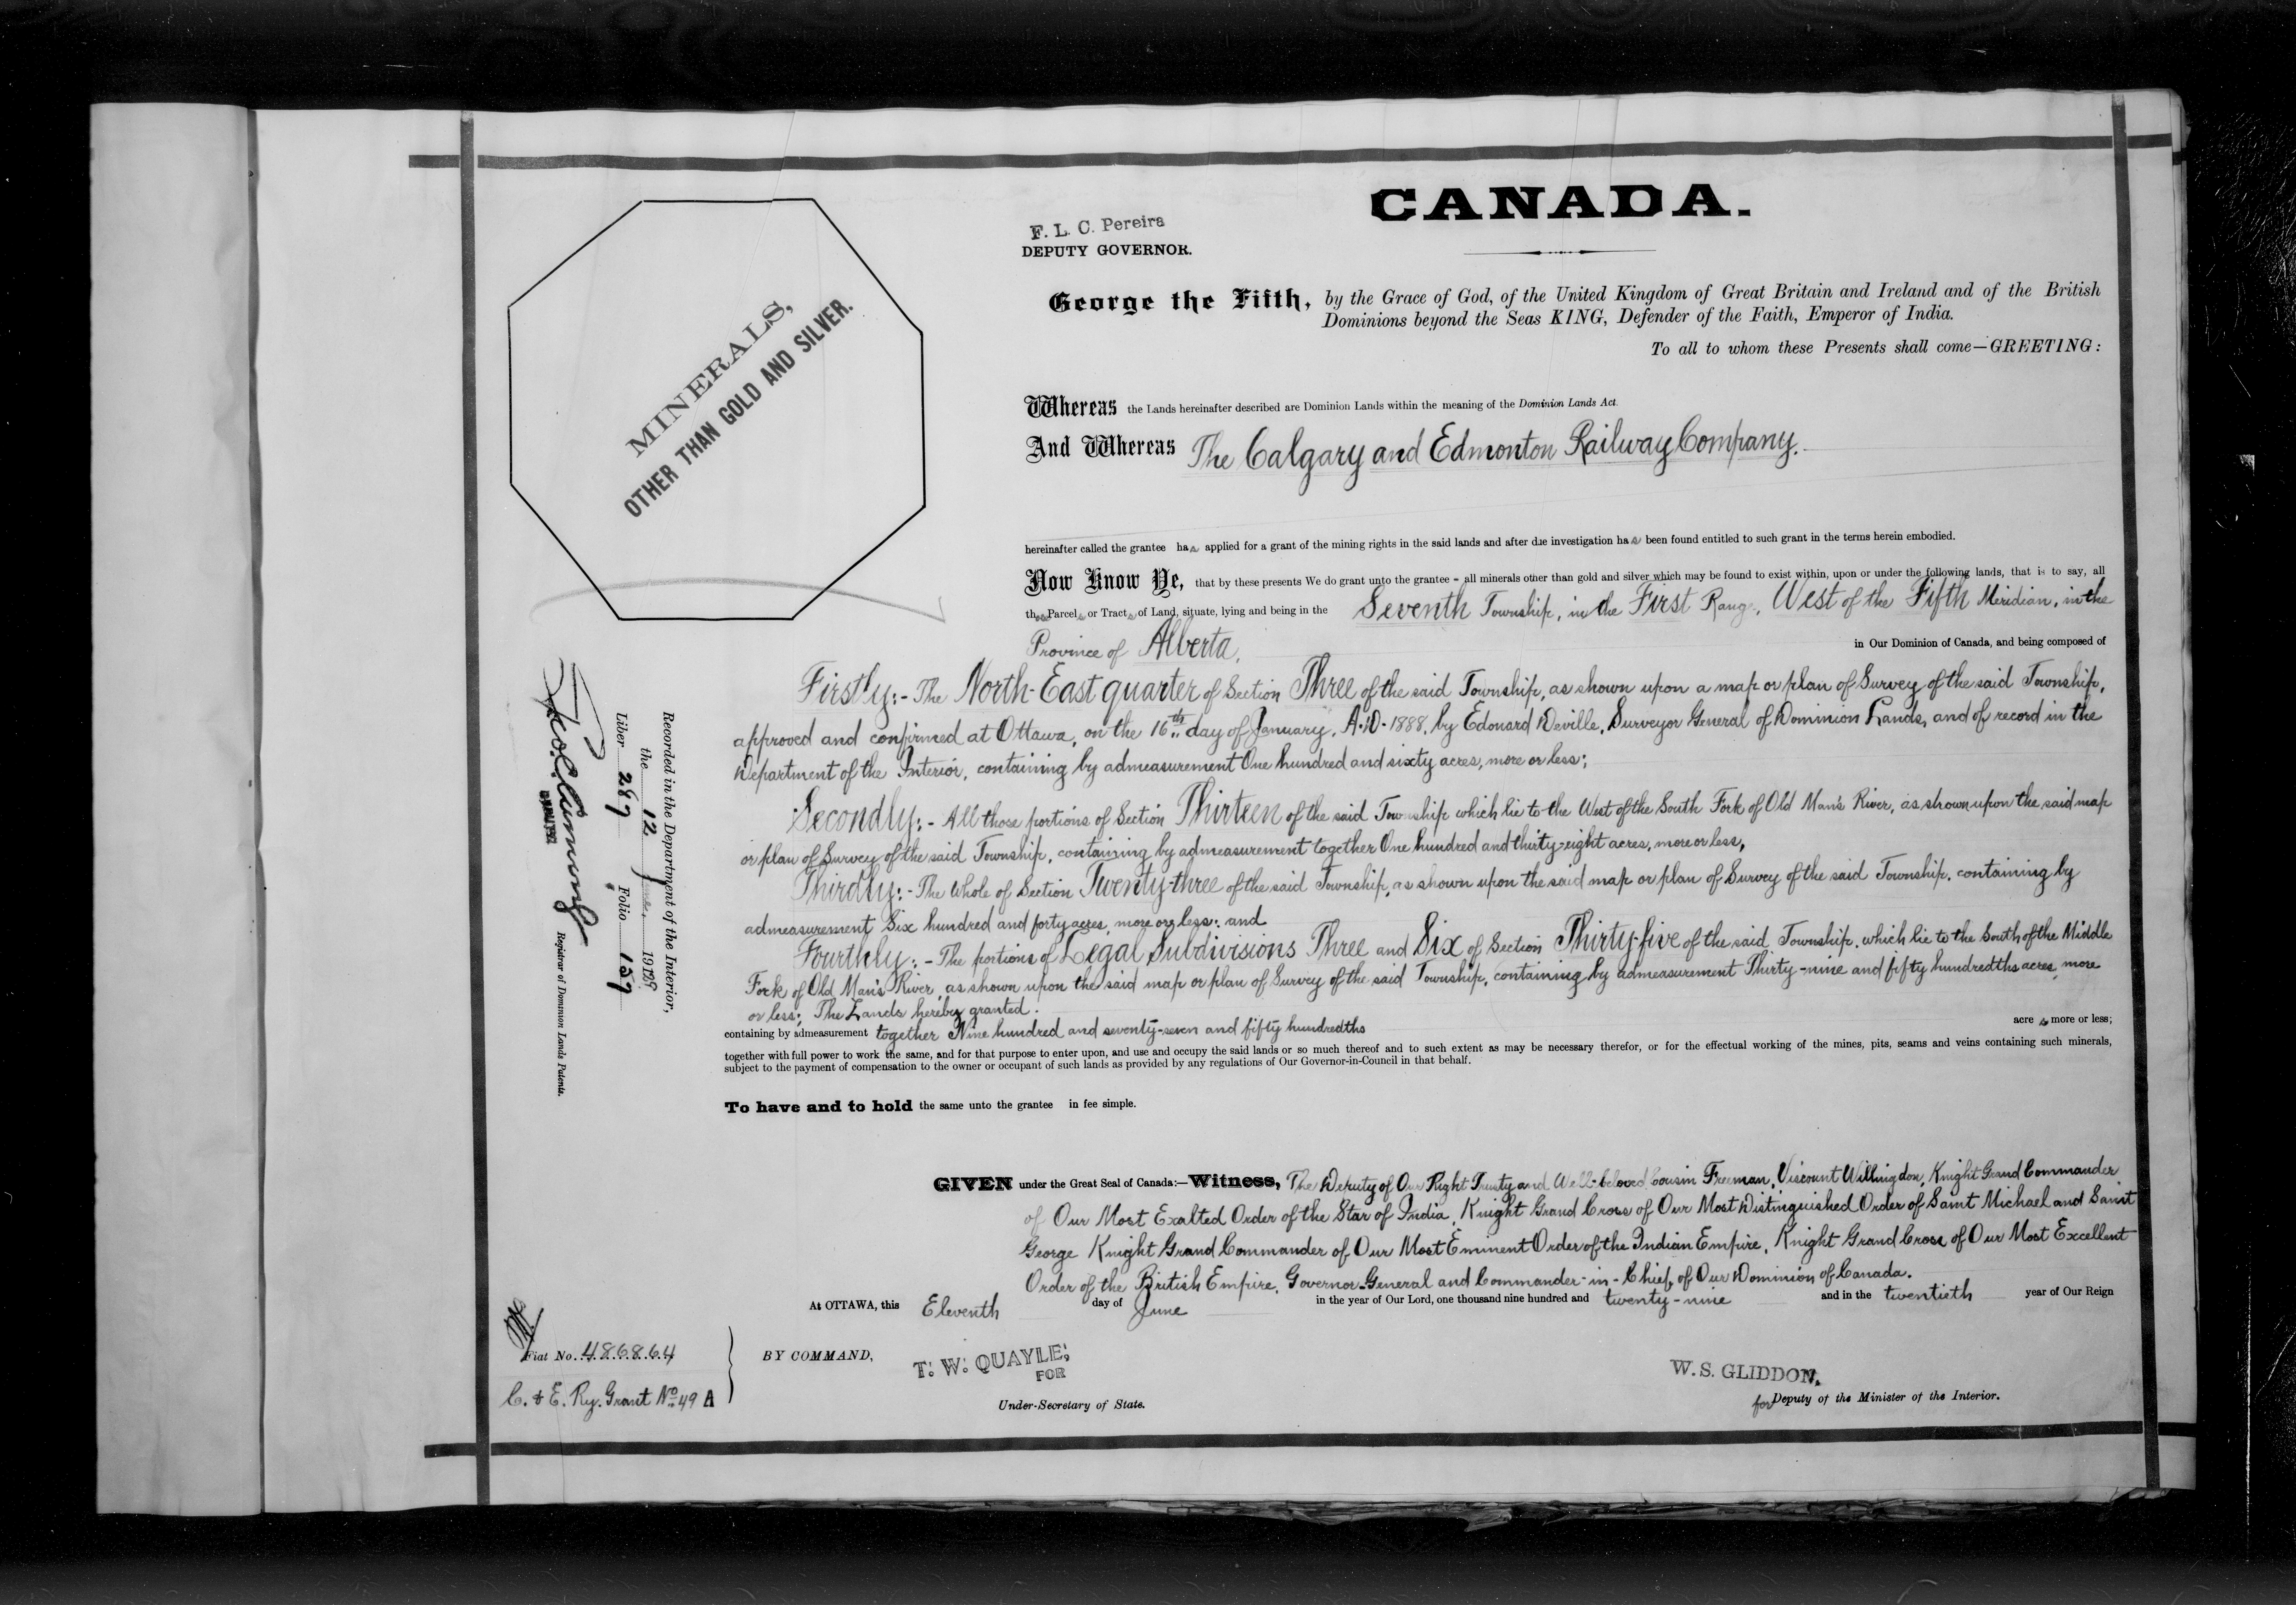 CANADA.
F. L. C. Pereira
DEPUTY GOVERNOR.
MINERALS,
OTHER THAN GOLD AND SILVER.
George the Fifth, by the Grace of God, of the United Kingdom of Great Britain and Ireland and of the British
Dominions beyond the Seas KING, Defender of the Faith, Emperor of India.
To all to whom these Presents shall come—GREETING:
Whereas the Lands hereinafter described are Dominion Lands within the meaning of the Dominion Lands Act.
And Whereas The Calgary and Edmonton Railway Company.
hereinafter called the grantee has applied for a grant of the mining rights in the said lands and after due investigation has been found entitled to such grant in the terms herein embodied.
Now Know Ye, that by these presents We do grant unto the grantee - all minerals other than gold and silver which may be found to exist within, upon or under the following lands, that is to say, all
those Parcels or Tracts of Land, situate, lying and being in the Seventh Township, in the First Range, West of the Fifth Meridian, in the
Province of Alberta, in Our Dominion of Canada, and being composed of
Firstly:- The North-East quarter of Section Three of the said Township, as shown upon a map or plan of Survey of the said Township,
approved and confirmed at Ottawa, on the 16th day of January, A.D. 1888, by Edouard Deville, Surveyor General of Dominion Lands, and of record in the
Department of the Interior, containing by admeasurement One hundred and sixty acres, more or less;
Secondly:- All those portions of Section Thirteen of the said Township which lie to the West of the South Fork of Old Man's River, as shown upon the said map
or plan of Survey of the said Township, containing by admeasurement together One hundred and thirty-eight acres, more or less,
Thirdly:- The whole of Section Twenty-three of the said Township, as shown upon the said map or plan of Survey of the said Township, containing by
admeasurement Six hundred and forty acres, more or less; and
Fourthly:- The portions of Legal Subdivisions Three and Six of Section Thirty-five of the said Township, which lie to the South of the Middle
Fork of Old Man's River, as shown upon the said map or plan of Survey of the said Township, containing by admeasurement Thirty-nine and fifty hundredths acres, more
or less; The Lands hereby granted.
containing by admeasurement together Nine hundred and seventy-seven and fifty hundredths acres more or less;
together with full power to work the same, and for that purpose to enter upon, and use and occupy the said lands or so much thereof and to such extent as may be necessary therefor, or for the effectual working of the mines, pits, seams and veins containing such minerals,
subject to the payment of compensation to the owner or occupant of such lands as provided by any regulations of Our Governor-in-Council in that behalf.
To have and to hold the same unto the grantee in fee simple.
GIVEN under the Great Seal of Canada:—Witness, The Deputy of Our Right Trusty and Well-beloved Cousin Freeman, Viscount Willingdon, Knight Grand Commander
of Our Most Exalted Order of the Star of India, Knight Grand Cross of Our Most Distinguished Order of Saint Michael and Saint
George Knight Grand Commander of Our Most Eminent Order of the Indian Empire, Knight Grand Cross of Our Most Excellent
Order of the British Empire, Governor General and Commander-in-Chief, of Our Dominion of Canada.
At OTTAWA, this Eleventh day of June in the year of Our Lord, one thousand nine hundred and twenty-nine and in the twentieth year of Our Reign
BY COMMAND,
T. W. QUAYLE,
FOR
Under-Secretary of State.
W. S. GLIDDON,
for Deputy of the Minister of the Interior.
Fiat No. 486864
C. & E. Ry. Grant No. 49 A
Recorded in the Department of the Interior,
the 12 June, 1929
Liber 287 Folio 157
Registrar of Dominion Lands Patents.